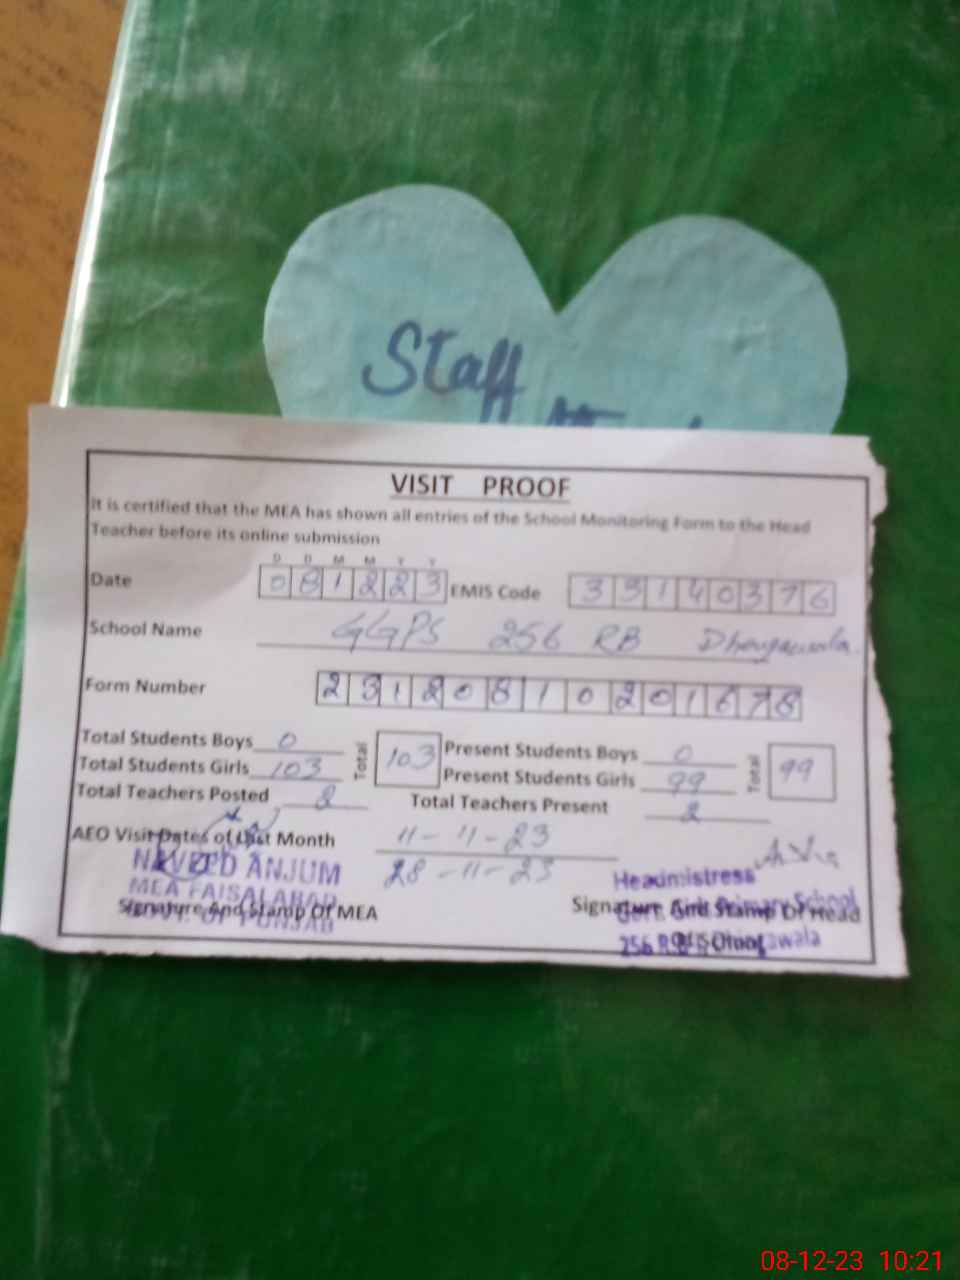 Staff
VISIT PROOF
It is certified that the MEA has shown all entries of the School Monitoring Form to the Head
Teacher before its online submission
D D M M Y Y
Date 081223 EMIS Code 33140376
School Name GGPS 256 RB
Form Number 23120810201678
Total Students Boys 0 Total 103 Present Students Boys 0 Total 99
Total Students Girls 103 Present Students Girls 99
Total Teachers Posted 2 Total Teachers Present 2
AEO Visit Dates of Last Month 11-11-23
28-11-23
NAVEED ANJUM
MEA FAISALABAD
GOVT. OF PUNJAB
Signature And Stamp Of MEA
Headmistress
Govt. Girls Primary School
256 R.B
Signature And Stamp Of Head
Of School
08-12-23 10:21